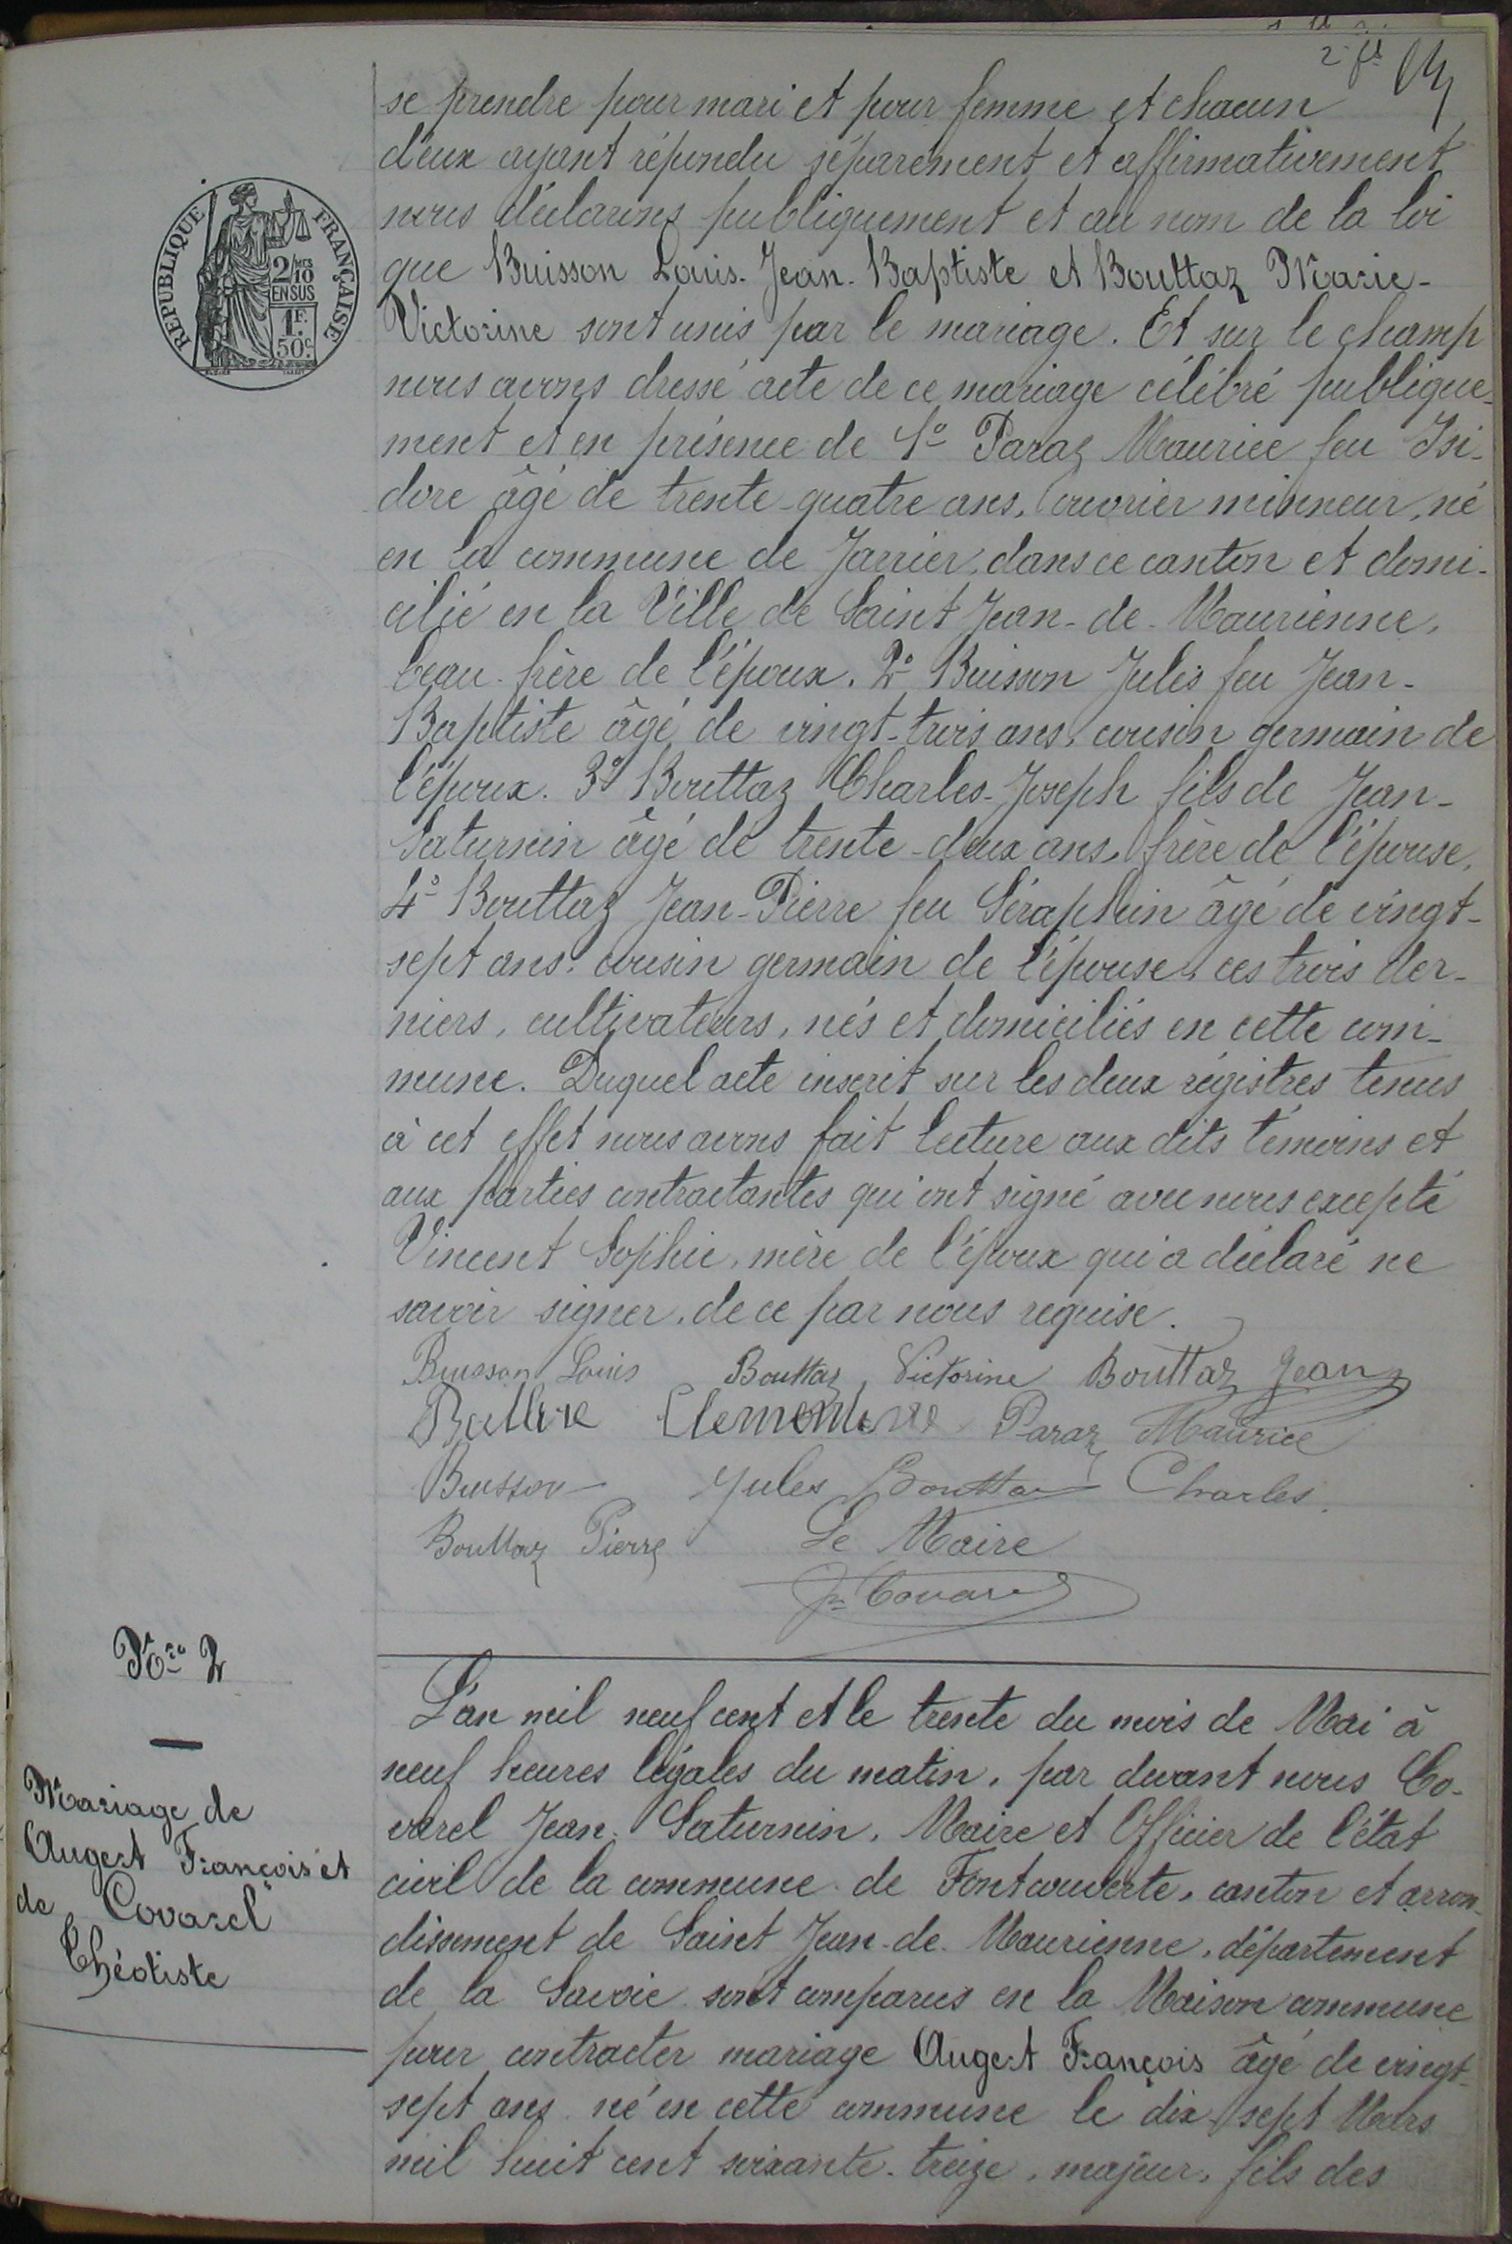 2. ft
se prendre pour mari et pour femme et chacun
d'eux ayant répondu séparément et affirmativement
nous déclarons publiquement et au nom de la loi
que Buisson Louis-Jean-Baptiste et Bouttaz Marie-
Victorine sont unis par le mariage. Et sur le champ
nous avons dressé acte de ce mariage célébré publique-
ment et en présence de 1º Paraz Maurice feu Isi-
dore âgé de trente-quatre ans, ouvrier minneur, né
en la commune de Jarrier, dans ce canton et domi-
cilié en la Ville de Saint Jean-de-Maurienne,
beau-frère de l'époux. 2º Buisson Jules feu Jean-
Baptiste âgé de vingt-trois ans, cousin germain de
l'époux. 3º Bouttaz Charles-Joseph fils de Jean-
Saturnin âgé de trente-deux ans, frère de l'épouse.
4º Bouttaz Jean-Pierre feu Séraphin âgé de vingt-
sept ans, cousin germain de l'épouse, ces trois der-
niers, cultivateurs, nés et domiciliés en cette com-
mune. Duquel acte inscrit sur les deux régistres tenus
à cet effet nous avons fait lecture aux dits témoins et
aux parties contractantes qui ont signé avec nous excepté
Vincent Sophie, mère de l'époux qui a déclaré ne
savoir signer, de ce par nous requise.
Buisson Louis Bouttaz Victorine Bouttaz Jean
Clementine Paraz Maurice
Buisson Jules Bouttaz Charles
Bouttaz Pierre Le Maire
Jn Covarel
RÉPUBLIQUE FRANÇAISE
2/10 EN SUS
1F.50c
Nº 2
Mariage de
Augert François et
de Covarel
Théotiste
L'an mil neuf cent et le trente du mois de Mai à
neuf heures légales du matin, par devant nous Co-
varel Jean-Saturnin, Maire et Officier de l'état
civil de la commune de Fontcouverte, canton et arron-
dissement de Saint Jean-de-Maurienne, département
de la Savoie sont comparus en la Maison commune
pour contracter mariage Augert François âgé de vingt-
sept ans né en cette commune le dix-sept Mars
mil huit cent soixante-treize, majeur, fils des